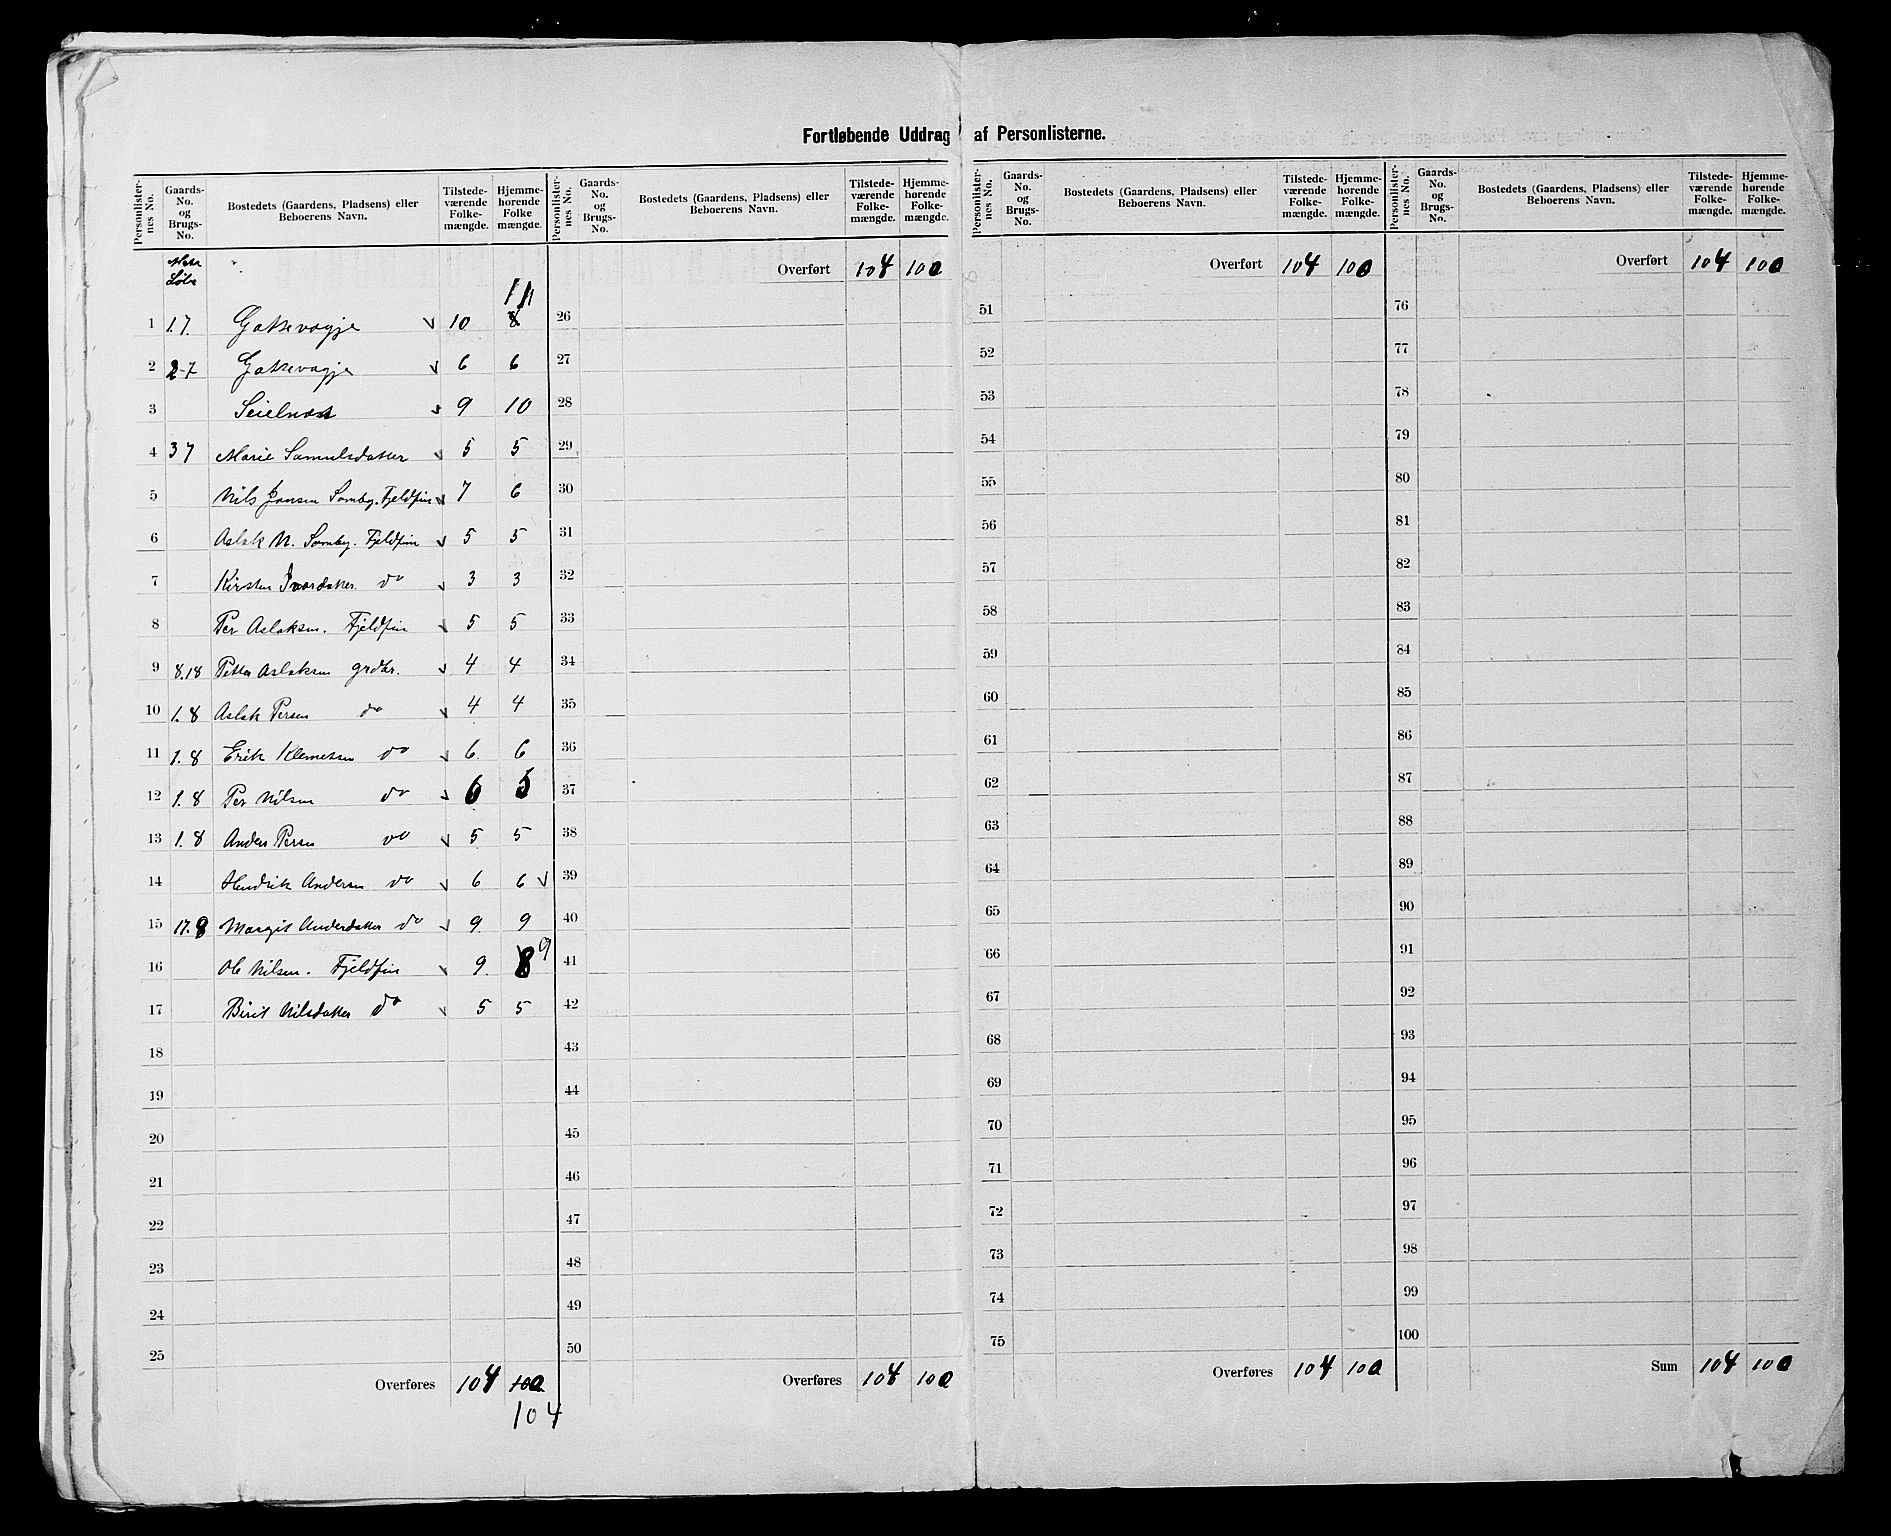 Fortløbende Uddrag af Personlisterne.
Personlisternes No. | Gaards-No. og Brugs-No. | Bostedets (Gaardens, Pladsens) eller Beboerens Navn. | Tilstedeværende Folkemængde. | Hjemmehørende Folkemængde.
1 | 1.7 | Gakkevagje | 10 | 8 11
2 | 2-7 | Gakkevagje | 6 | 6
3 | Seielnæs | 9 | 10
4 | 3 7 | Marie Samulsdatter | 5 | 5
5 | Nils Jansen Somby. Fjeldfin | 7 | 6
6 | Aslak N. Somby. Fjeldfin | 5 | 5
7 | Kirsten Ivardatter. do | 3 | 3
8 | Per Aslaksen. Fjeldfin | 5 | 5
9 | 8.18 | Petter Aslaksen grdbr. | 4 | 4
10 | 1.8 | Aslak Persen do | 4 | 4
11 | 1.8 | Erik Klemetsen do | 6 | 6
12 | 1.8 | Per Nilsen do | 6 | 5
13 | 1.8 | Anders Persen do | 5 | 5
14 | Hendrik Andersen do | 6 | 6
15 | 17.8 | Margit Andersdatter do | 9 | 9
16 | Ole Nilsen. Fjeldfin | 9 | 8 9
17 | Birit Nilsdatter do | 5 | 5
18
19
20
21
22
23
24
25
Overføres 104 100
104
Personlisternes No. | Gaards-No. og Brugs-No. | Bostedets (Gaardens, Pladsens) eller Beboerens Navn. | Tilstedeværende Folkemængde. | Hjemmehørende Folkemængde.
Overført 104 100
26
27
28
29
30
31
32
33
34
35
36
37
38
39
40
41
42
43
44
45
46
47
48
49
50
Overføres 104 100
Personlisternes No. | Gaards-No. og Brugs-No. | Bostedets (Gaardens, Pladsens) eller Beboerens Navn. | Tilstedeværende Folkemængde. | Hjemmehørende Folkemængde.
Overført 104 100
51
52
53
54
55
56
57
58
59
60
61
62
63
64
65
66
67
68
69
70
71
72
73
74
75
Overføres 104 100
Personlisternes No. | Gaards-No. og Brugs-No. | Bostedets (Gaardens, Pladsens) eller Beboerens Navn. | Tilstedeværende Folkemængde. | Hjemmehørende Folkemængde.
Overført 104 100
76
77
78
79
80
81
82
83
84
85
86
87
88
89
90
91
92
93
94
95
96
97
98
99
100
Sum 104 100